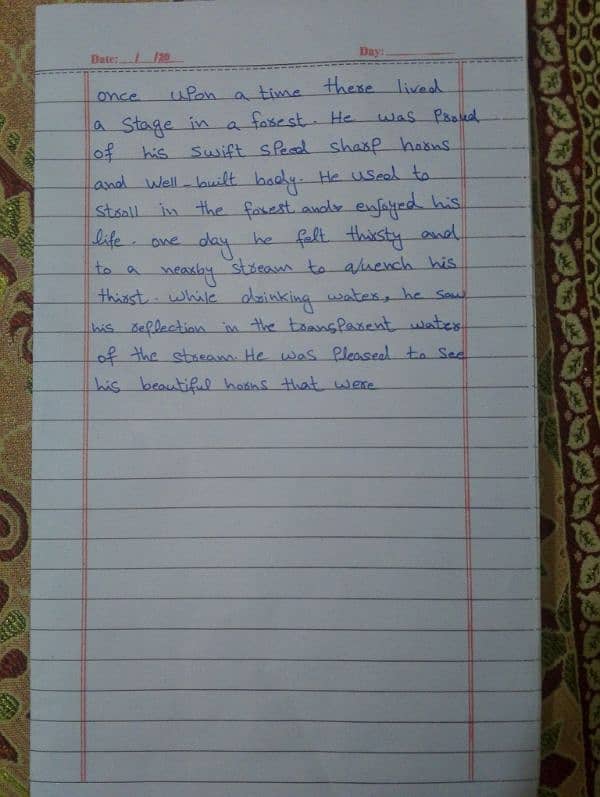 Date: / /20 Day:
once upon a time there lived
a Stage in a forest. He was Proud
of his swift speed sharp horns
and well-built body. He used to
stroll in the forest and enjoyed his
life. one day he felt thirsty and
to a nearby stream to quench his
thirst. while drinking water, he saw
his reflection in the transparent water
of the stream. He was Pleased to see
his beautiful horns that were